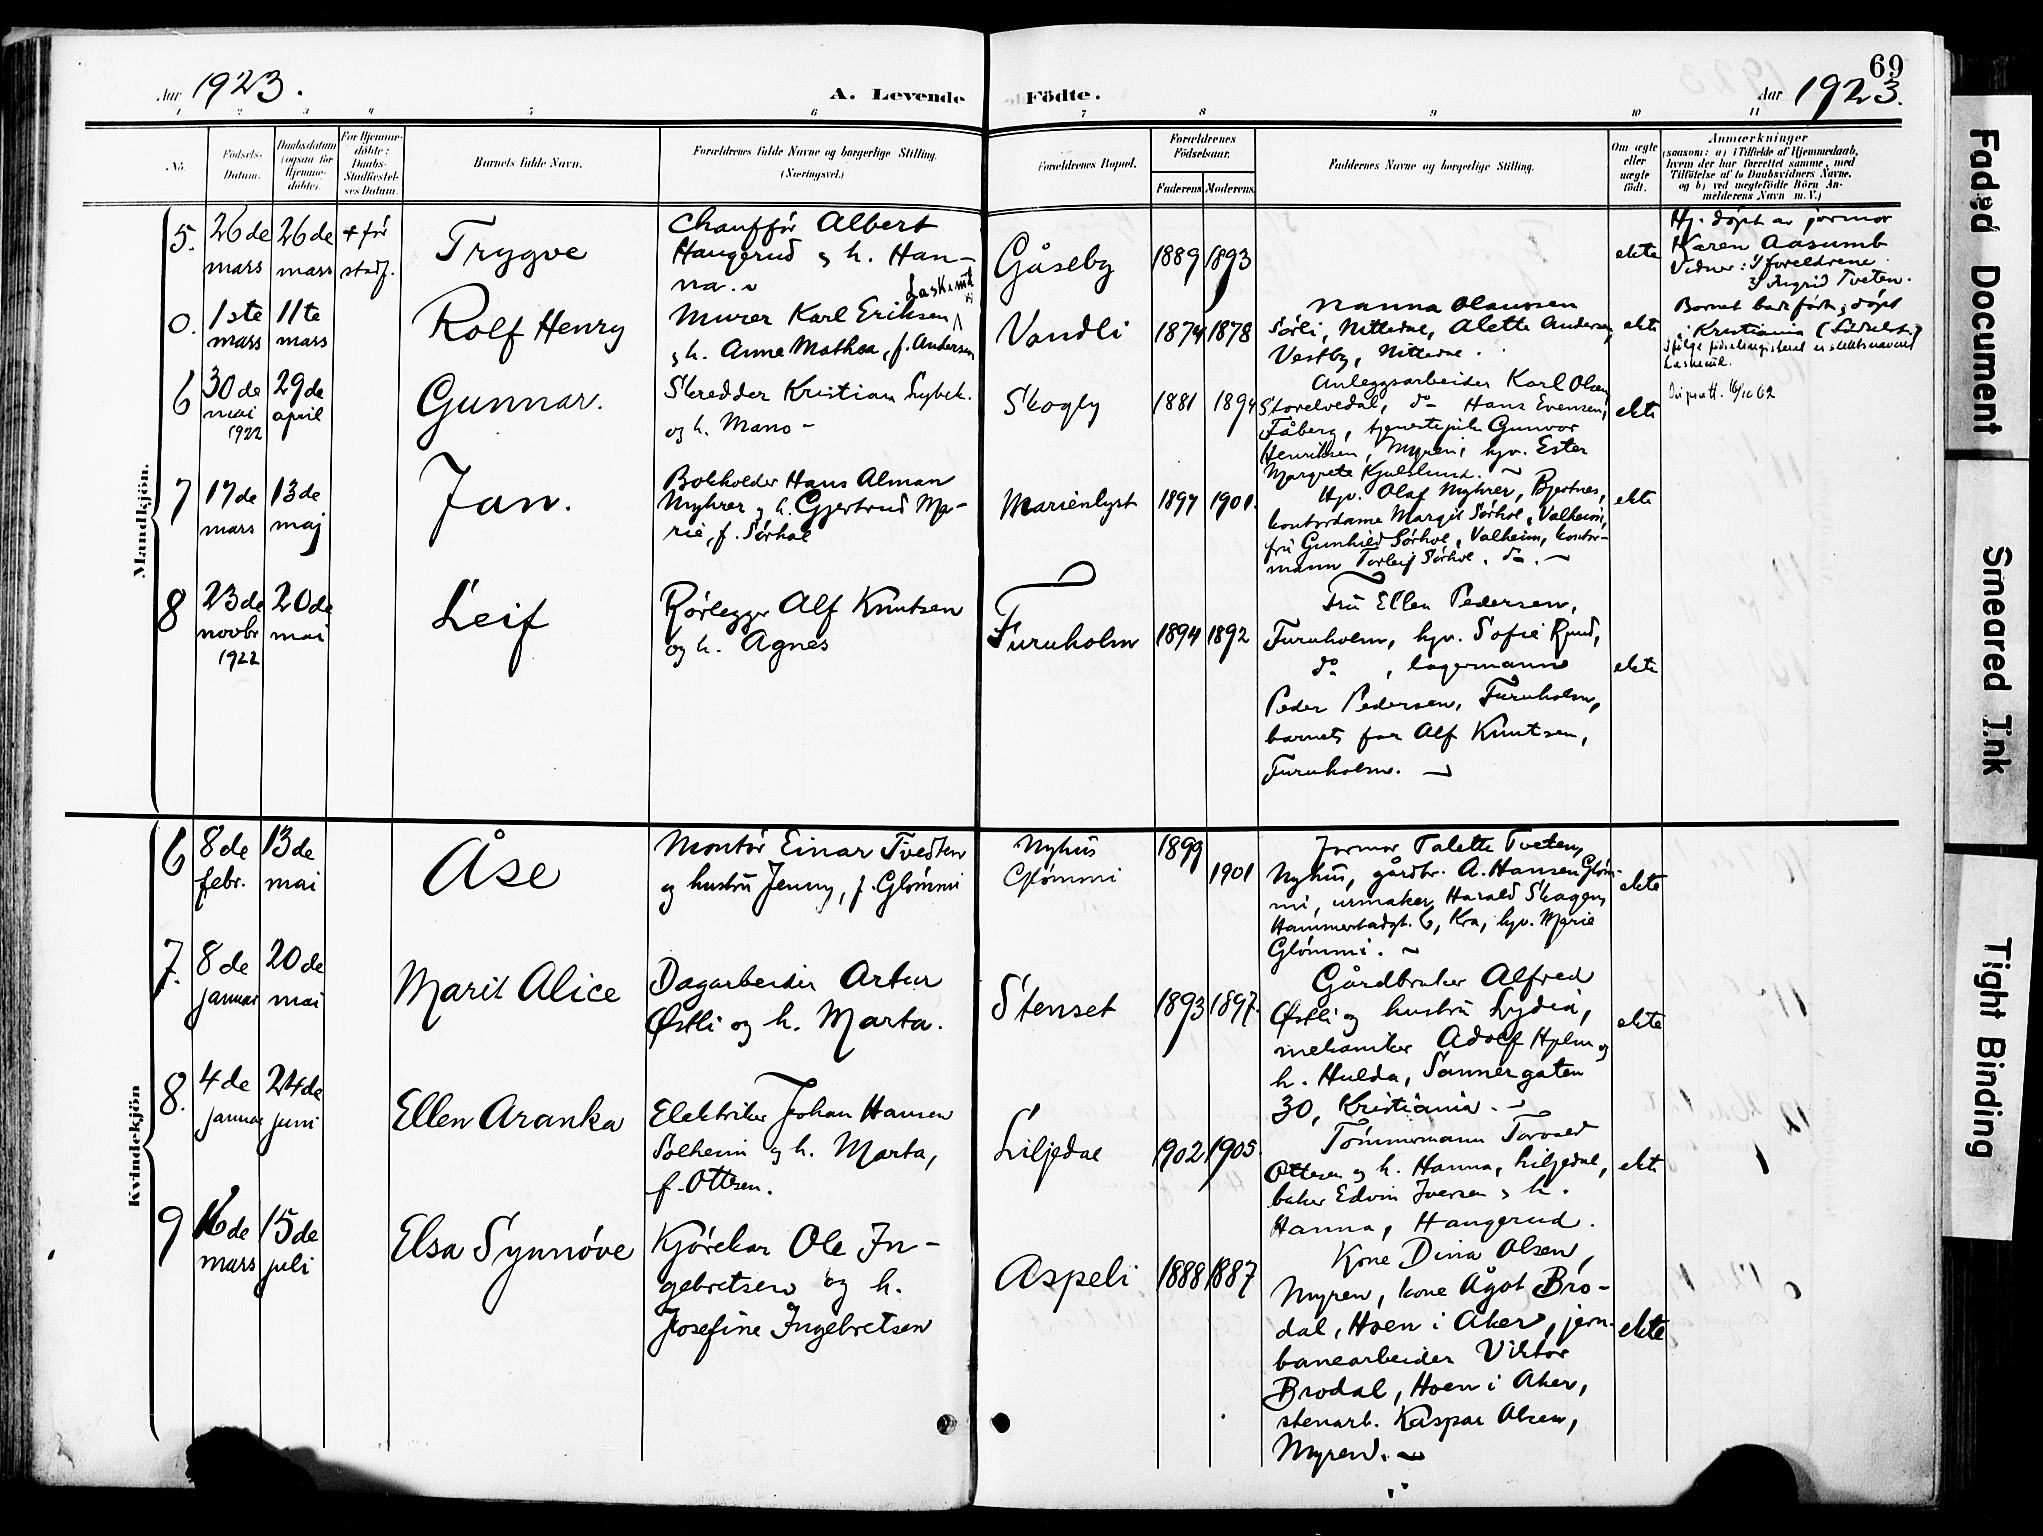 Aar 1923.
A. Levende
Födte.
69
Aar 1923.
1 2 3 4 5 6 7 8 9 10 11
No.
Födsels-
Datum.
Daabsdatum
(ogsaa for
Hjemme-
döbte).
For Hjemme-
döbte:
Daabs-
Stadfæstel-
ses Datum.
Barnets fulde Navn.
Forældrenes fulde Navne og borgerlige Stilling.
(Næringsvei.)
Forældrenes Bopæl.
Forældrenes
Födselsaar.
Faderens
Moderens
Faddernes Navne og borgerlige Stilling.
Om ægte
eller
uægte
födt.
Anmærkninger
(saasom: a) i Tilfælde af Hjemmedaab,
hvem der har forrettet samme, med
Tilföielse af to Daabsvidners Navne,
og b) ved uægtefödte Börn An-
melderens Navn m. V.)
Mandkjön.
5.
26de
mars
26de
mars
+ før
stadf.
Trygve
Chauffør Albert
Haugerud og h. Han-
na.
Gåseby
1889
1893
ekte
Hj. døpt av jormor
Karen Aasumb
Vidner: 1) foreldrene
2) Ingrid Tveten.
0.
1ste
mars
11te
mars
Rolf Henry
Laskemit
Murer Karl Eriksen
og h. Anne Mathea, f. Andersen
Vandli
1874
1878
Nanna Olaussen
Sørli, Nittedal, Alette Andersen,
Vestby, Nittedal.
ekte
Barnet back født og døpt
i Kristiania
Laskemit.
6
30de
mai
1922
29de
april
Gunnar.
Skredder Kristian Lybek.
og h. Maro -
Skogly
1881
1894
Anleggsarbeider Karl Olsen
Storelvedal, do Hans Evensen,
Fåberg, tjenestepike Gunvor
Henriksen, Myren; hyv. Ester
Margrete Kjulslund.
ekte
16/10 62
7
17de
mars
13de
maj
Jan.
Bokholder Hans Alman
Myhrer og h. Gjertrud Ma-
rie, f. Sørhol
Marienlyst
1897
1901.
Hyv. Olaf Myhrer, Bjertnes,
kontordame Margit Sørhol, Valheim,
frù Gunhild Sørhol, Valheim, kontor-
mann Torleif Sørhol. do.
ekte
8
23de
novbr
1922
20de
mai
Leif
Rørlegger Alf Knutsen
og h. Agnes
Furuholm
1894
1892
Frù Ellen Pedersen,
Furuholm, hyv. Sofie Ruud,
do , lagermann
Peder Pedersen, Furuholm,
barnets far Alf Knutsen,
Furuholm.
ekte
Kvindekjön
6
8de
febr.
13de
mai
Åse
Montør Einar Tvedten
og hustru Jenny, f. Glømmi
Nyhus
Glømmi
1899
1901
Jormor Talette Tveten,
Nyhus, gårdbr. A. Hansen Gløm-
mi, urmaker Harald Skogen,
Hammerstadgt. 6, Kra, hyv. Marie
Glømmi.
ekte
7.
8de
januar
20de
mai
Marit Alice
Dagarbeider Artur
Østli og h. Marta.
Stenset
1893
1897.
Gårdbruker Alfred
Østli og hustru Lydia,
mekaniker Adolf Holm og
h. Hulda, Sannergaten
30, Kristiania.
ekte
8.
4de
januar
24de
juni
Ellen Aranka
Elektriker Johan Hansen
Solheim og h. Marta,
f. Ottesen.
Liljedal
1902
1905
Tømmermann Torvald
Ottesen og h. Hanna, Liljedal,
baker Edvin Iversen og h.
Hanna, Haugerud.
ekte
9
16de
mars
15de
juli
Elsa Synnøve
Kjørekar Ole In-
gebretsen og h.
Josefine Ingebretsen
Aspeli
1888
1887
Kone Dina Olsen,
Myren, kone Ågot Bro-
dal, Hoen i Aker, jern-
banearbeider Viktor
Brodal, Hoen i Aker,
stenarb. Kaspar Olsen,
Myren.
ekte
Faded Document
Smeared Ink
Tight Binding